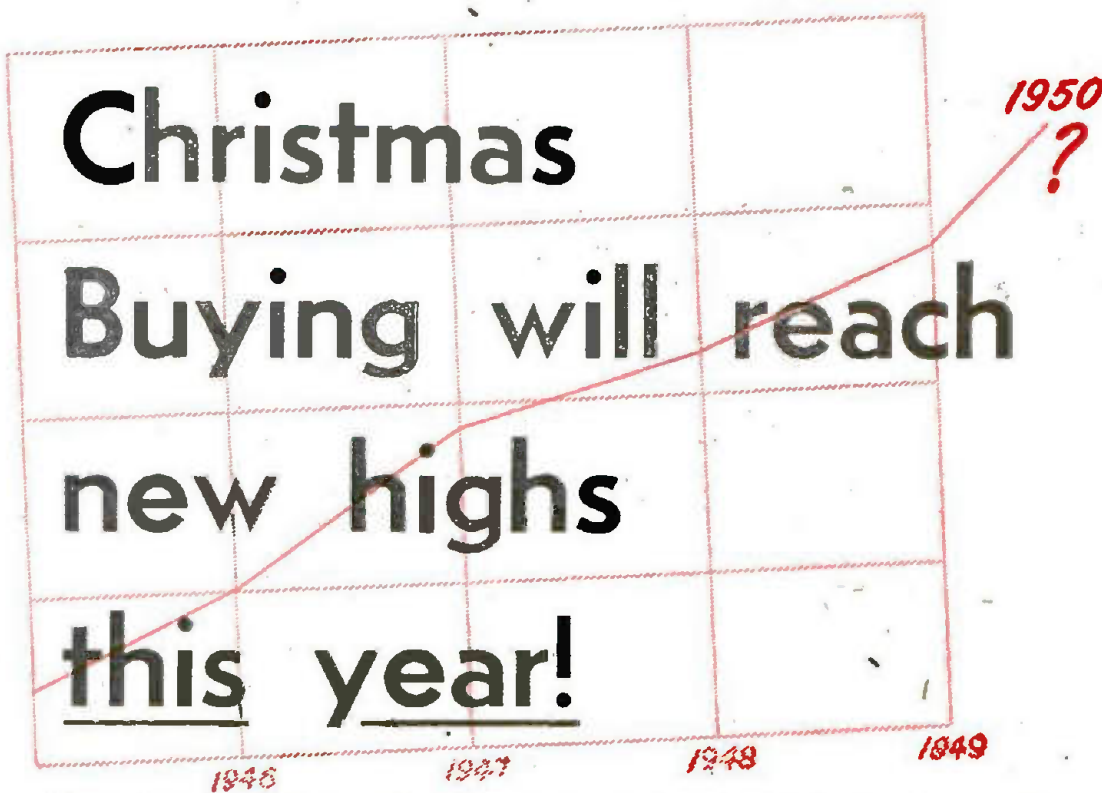 Christmas
1950
?
Buying will reach
new highs
this year!
1946 1947 1948 1949